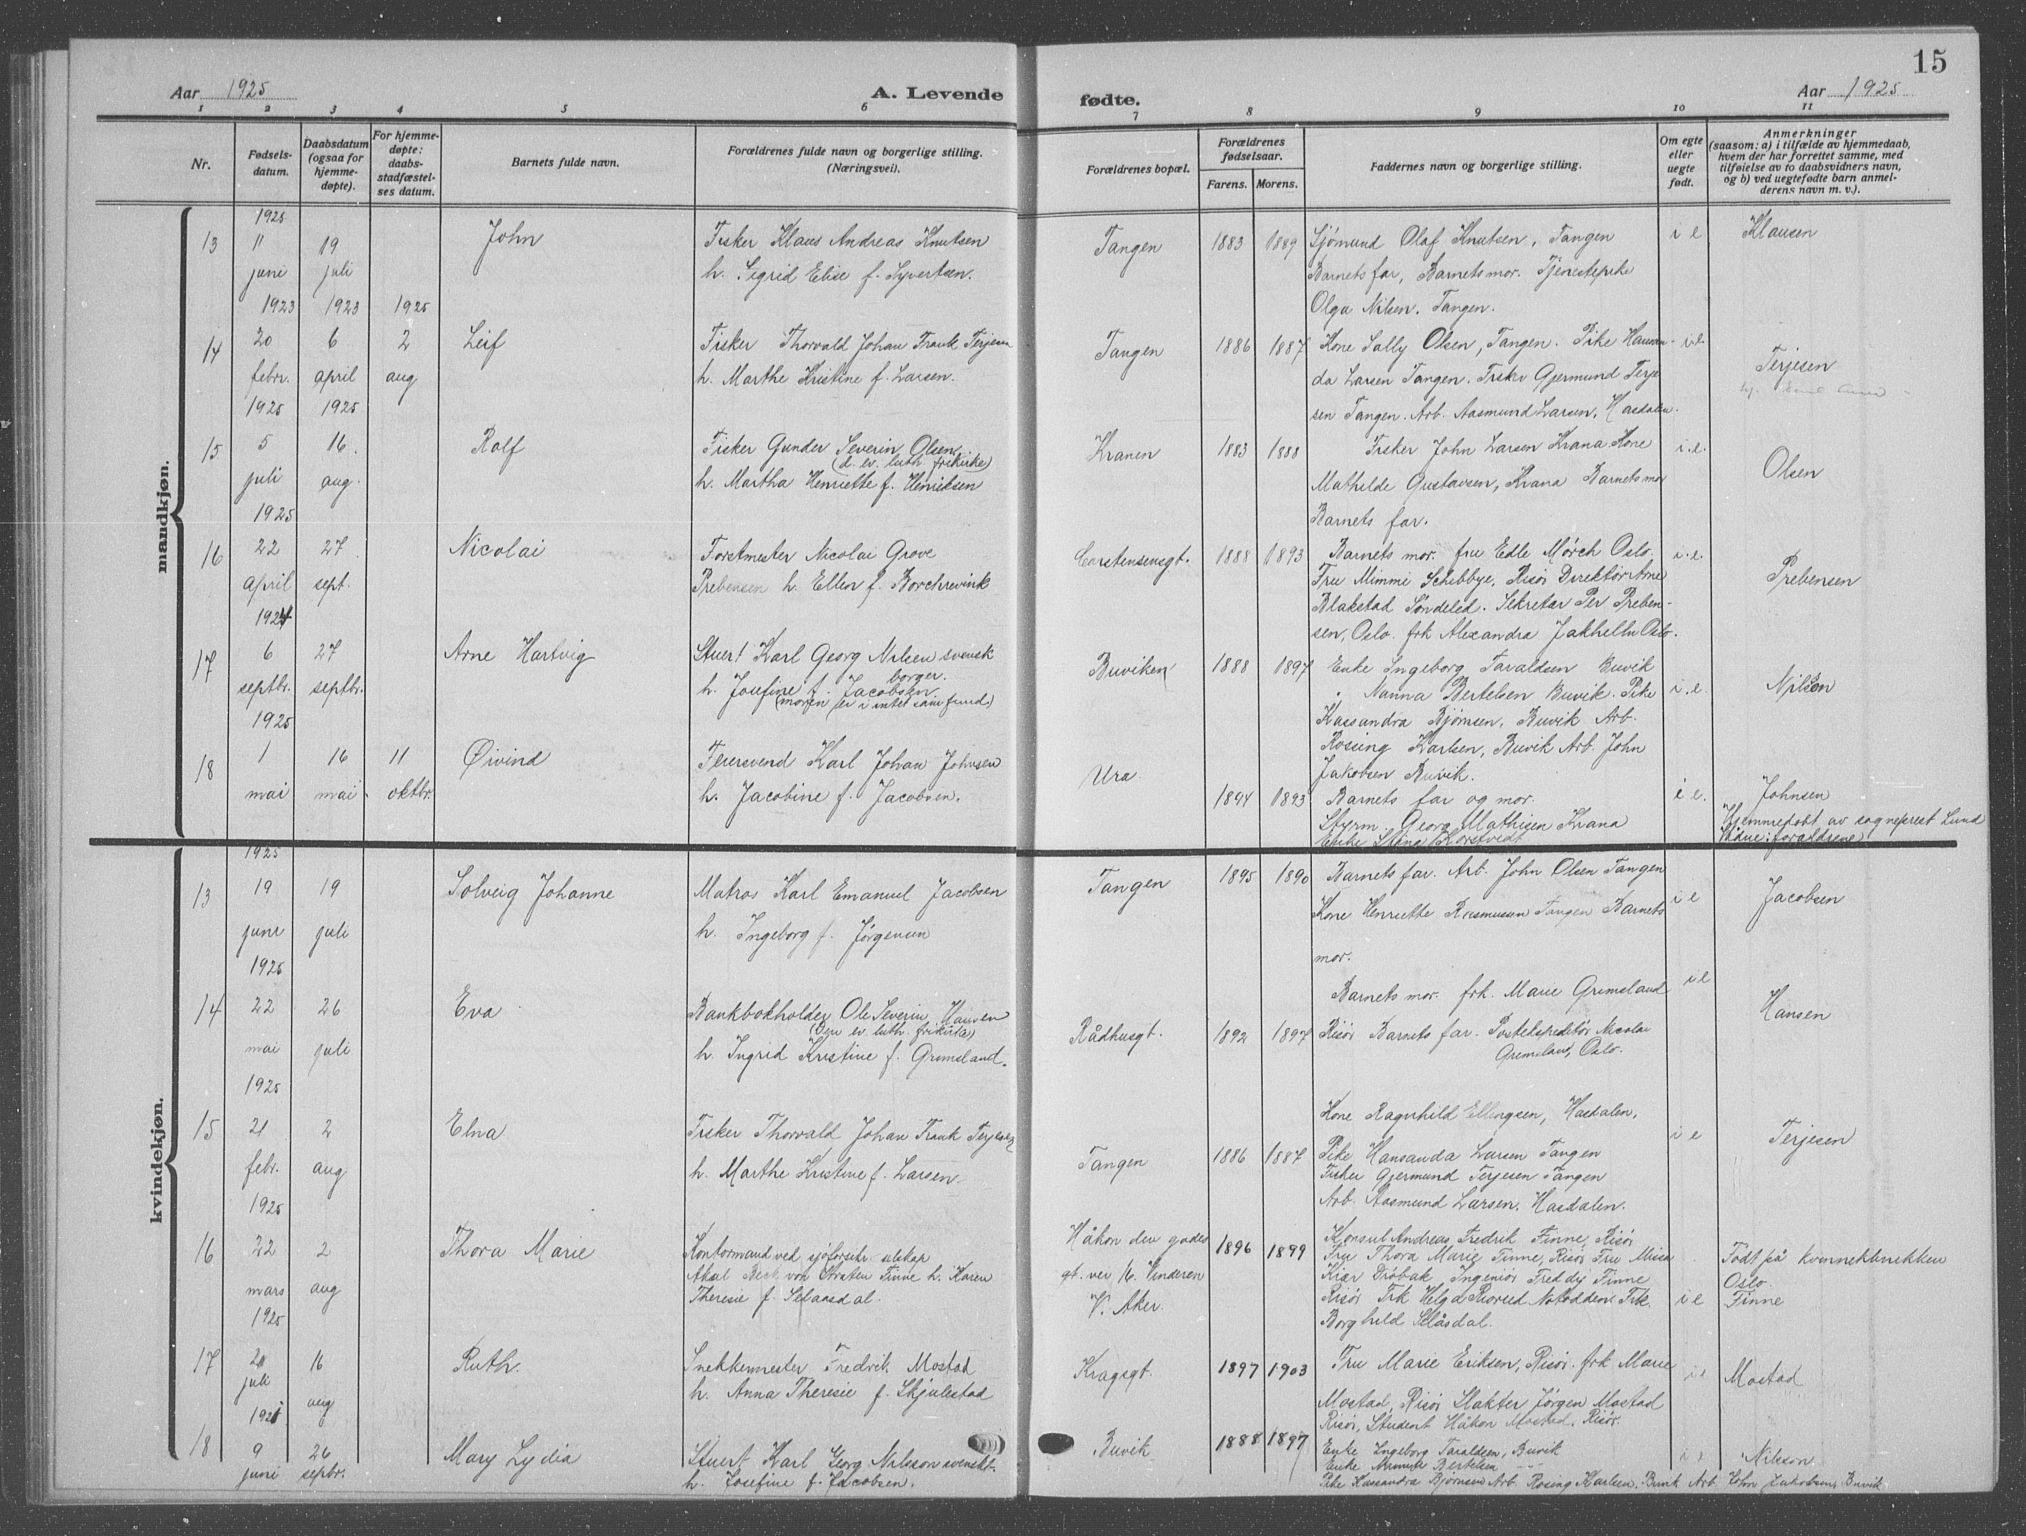 15
Aar 1925
A. Levende
fødte.
Aar 1925
1 2 3 4 5 6 7 8 9 10 11
Nr.
Fødsels-
datum.
Daabsdatum
(ogsaa for
hjemme-
døpte).
For hjemme-
døpte:
daabs-
stadfæstel-
ses datum.
Barnets fulde navn.
Forældrenes fulde navn og borgerlige stilling.
(Næringsvei).
Forældrenes bopæl.
Forældrenes
fødselsaar.
Farens. Morens.
Faddernes navn og borgerlige stilling.
Om egte
eller
uegte
født.
Anmerkninger
(saasom: a) i tilfælde av hjemmedaab,
hvem der har forrettet samme, med
tilføielse av to daabsvidners navn,
og b) ved uegtefødte barn anmel-
derens navn m. v.).
mandkjøn.
1925
13 11 juni
19 juli
John
Fisker Klaus Andreas Knutsen
h. Sigrid Elise f. Syvertsen.
Tangen
1883 1889
Sjømund Olaf Knutsen, Tangen
Barnets far, Barnets mor. Tjenestepike
Olga Nilsen. Tangen.
i e
Klausen
1923 1923 1925
14 20 febr.
6 april
2 aug
Leif
Fisker Thorvald Johan Frank Terjesen
h. Marthe Kristine f. Larsen.
Tangen
1886 1887
Kone Sally Olsen, Tangen. Pike Hansan-
da Larsen Tangen. Fisker Gjermund Terje
sen Tangen. Arb. Aasmund Larsen, Hasdalen.
i e
Terjesen
1925 1925
15 5 juli
16. aug.
Rolf
Fisker Gunder Severin Olsen
(d. ev. luth. frikirke)
h. Martha Henriette f. Henriksen
Kranen
1883 1888
Fisker John Larsen Krana Kone
Mathilde Gustavsen, Krana Barnets mor
Barnets far.
i.e.
Olsen
1925
16 22 april
27 sept.
Nicolai
Forstmester Nicolai Grove
Prebensen h. Ellen f. Borchrevink
Carstensensgt.
1888 1893
Barnets mor. fru Edle Mørch Oslo.
Fru Mimmi Schibbye, Risør Direktør Arne
Blakstad Søndeled. Sekretær Per Preben-
sen, Oslo. frk Alexandra Jakhelln Oslo.
i.e.
Prebensen
1924
17 6 septbr.
27 septbr.
Arne Hartvig
Stuert Karl Georg Nilsen svensk
borger.
h. Josefine f. Jacobsen.
(moren er i intet samfund.)
Buviken
1888 1897
Enke Ingeborg Taraldsen Buvik
" Nanna Bertelsen Buvik. Pike
Kassandra Bjørnsen, Buvik Arb.
Rossing Karlsen, Buvik Arb. John
Jakobsen Buvik.
i.e.
Nilsen
1925
18 1 mai
16 mai
11 oktbr.
Øivind
Feiersvend Karl Johan Johnsen
h. Jacobine f. Jacobsen.
Ura
1894 1893
Barnets far og mor.
Styrm. Georg Mathisen Krana
Enke Stina Korstvedt
i e.
Johnsen
Hjemmedøbt av sogneprest Lund
Vidne: forældrene
kvindekjøn.
1925
13 19 juni
19 juli
Solveig Johanne
Matros Karl Emanuel Jacobsen
h. Ingeborg f. Jørgensen
Tangen
1895 1890
Barnets far. Arb. John Olsen Tangen
Kone Henriette Rasmussen Tangen Barnets
mor.
i e
Jacobsen
1925
14 22 mai
26 juli
Eva
Bankbokholder Ole Severin Hansen
(Den ev luth. frikirke)
h. Ingrid Kristine f. Grimsland.
Rådhusgt.
1892 1897
Barnets mor. frk. Marie Grimsland
Risør Barnets far. Postekspeditør Nicolai
Grimsland, Oslo.
i e
Hansen
1925
15 21 febr.
2 aug
Elna
Fisker Thorvald Johan Frank Terjesen
h. Marthe Kristine f. Larsen.
Tangen
1886 1887
Kone Ragnhild Ellingsen, Hasdalen,
Pike Hansanda Larsen Tangen
Fisker Gjermund Terjesen Tangen
Arb. Aasmund Larsen. Hasdalen.
i e
Terjesen
1925
16 22 mars
2 aug
Thora Marie
Kontormand ved sjøforsikr. selskap
Aksel Beck von Skraten Finne h. Karen
Theresie f. Selaasdal.
Håkon den godes
gt. vei 16. Vinderen
V. Aker.
1896 1899
Konsul Andreas Fredrik Finne, Risør
Fru Thora Marie Finne, Risør Fru Missa
Kiær Drøbak Ingeniør Freddy Finne
Risør Frk Helga Roersed Notodden Frk.
Borghild Selåsdal.
i e
Født på kvinneklinikken
Oslo.
Finne
1925
17 20 juli
16 aug
Ruth.
Snekkermester Fredrik Mostad
h. Anna Theresie f. Skjulestad
Kragsgt.
1897 1903
Fru Marie Eriksen, Risør. frk Marie
Mostad, Risør Slakter Jørgen Mostad
Risør, Student Håkon Mostad, Risør.
i e
Mostad
1925
18 9 juni
26 septbr.
Mary Lydia
Stuert Karl Georg Nilsson svensk
h. Josefine f. Jacobsen.
Buvik
1888 1897
Enke Ingeborg Taraldsen, Buvik
Enke Bertelsen
Pike Kassandra Bjørnsen Arb. Rosing Karlsen, Buvik Arb. John Jakobsen, Buvik
Nilsson